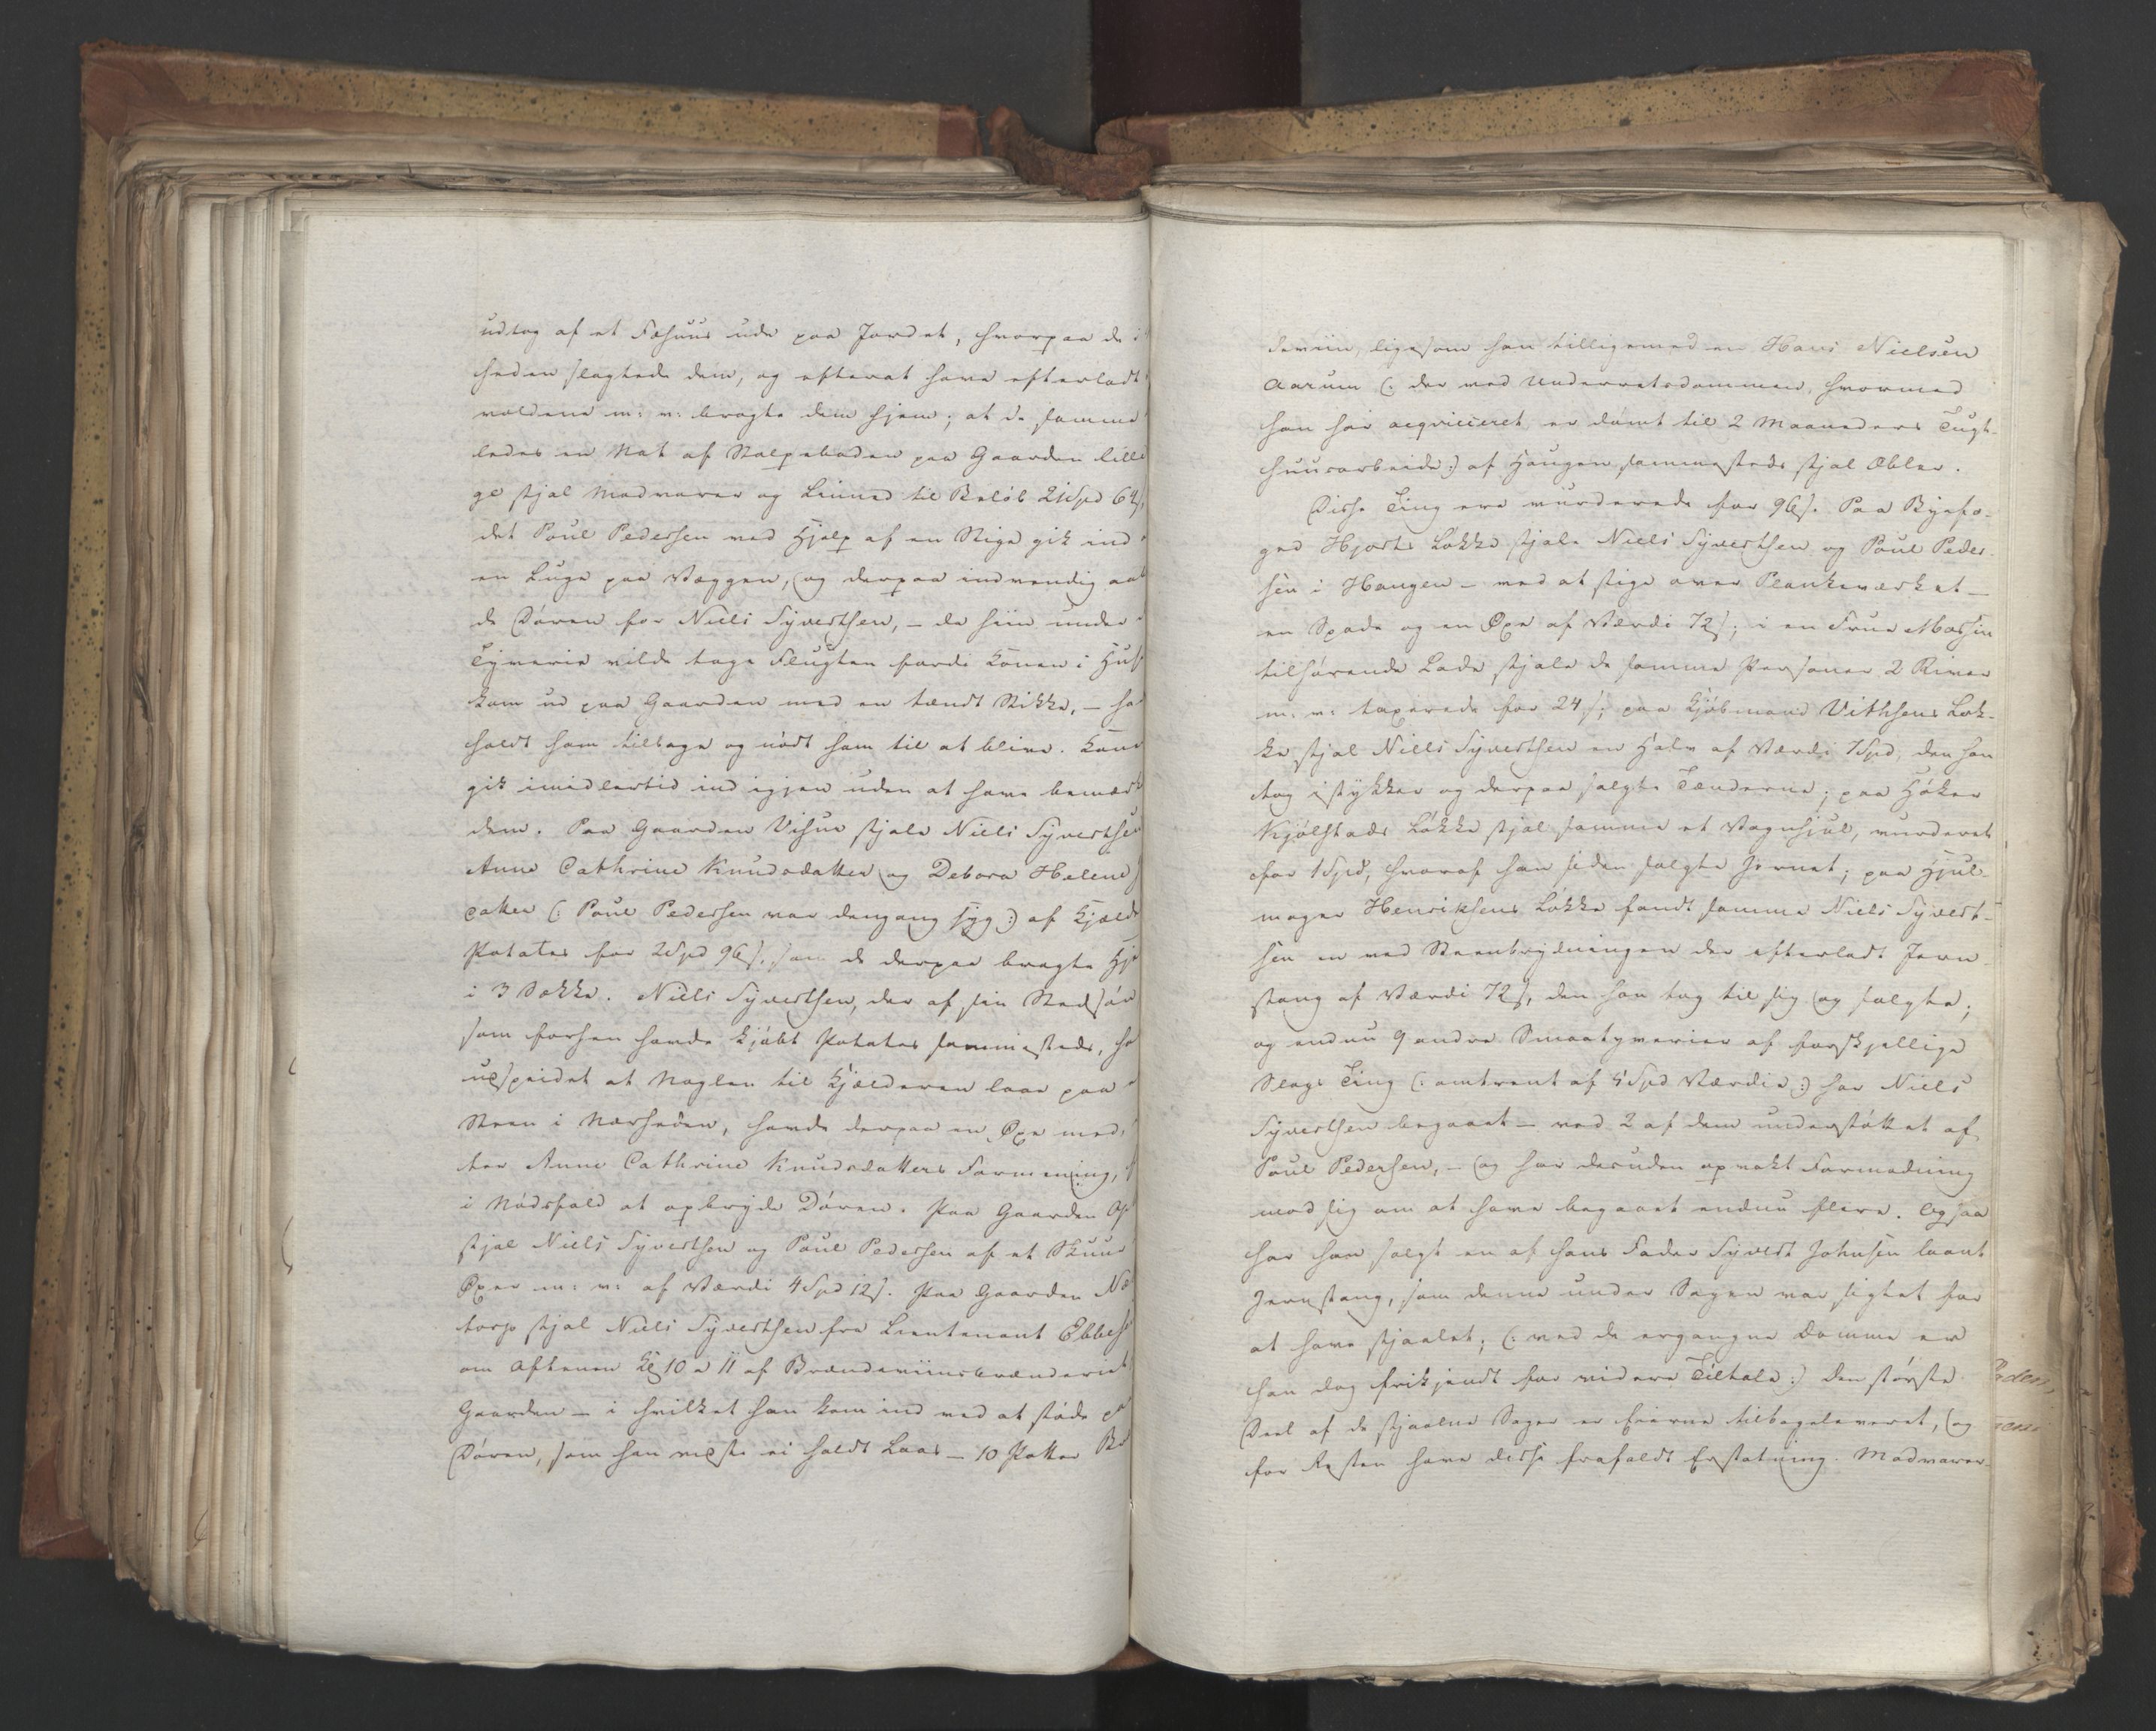 udtog af et Fæhuus ude paa Jordet, hvorpaa de i
heden slagtede dem, og efterat have efterladt
voldene m: v: bragte dem hjem; at de samme
ledes en Nat af Stolpeboden paa Gaarden Lille
ge stjal Madvarer og Linned til Beløb 21 Spd 64 s,
det Poul Pedersen ved Hjelp af en Stige gik ind
en Luge paa Væggen, og derpaa indvendig aab
de Døren for Niels Syvertsen, – da hiin under
Tyverie vilde tage Flugten fordi Konen i Hus
kom ud paa Gaarden med en tændt Stikke, – ha
holdt ham tilbage og nødt ham til at blive. Kone
gik imidlertid ind igjen uden at have bemærk
dem. Paa Gaarden Visur stjale Niels Syvertse
Anne Cathrine Knudsdatter og Debora Helene
datter (: Poul Pedersen var dengang syg :) af Kjæld
Potates for 2 Spd 96 s, som de derpaa bragte Hje
i 3 Sække. Niels Syvertsen, der af sin Stedsøn
som forhen havde kjøbt Potates sammesteds, ha
udspeidet at Nøglen til Kjælderen laae paa
Steen i Nærheden, havde derpaa en Øxe med,
ter Anne Cathrine Knudsdatters Formening,
i Nødsfald at opbryde Døren. Paa Gaarden
stjal Niels Syvertsen og Poul Pedersen af et Skuur
Øxer m: v: af Værdi 4 Spd 12 s. Paa Gaarden Næ
torp stjal Niels Syvertsen fra Lieutenant Ebbes
om Aftenen Kl 10 a 11 af Brændeviinsbrænderiet
Gaarden – i hvilket han kom ind ved at støde p
Døren, som han vidste ei holdt Laas – 10 Potter Br
deviin, ligesom han tilligemed en Hans Nielsen
Aarum (: der ved Underretsdommen, hvormed
han har acqviesceret, er dømt til 2 Maaneders Tugt-
huusarbeide :) af Haugen sammesteds stjal Æbler.
Disse Ting ere vurderede for 96 s. Paa Byefo-
ged Hjorts Løkke stjale Niels Syvertsen og Poul Peder-
sen i Haugen – ved at stige over Plankeværket –
en Spade og en Øxe af Værdi 72 s; i en Frue
tilhørende Lade stjale de samme Personer 2 River
m: v: taxerede for 24 s; paa Kjøbmand Vithsens Løk-
ke stjal Niels Syvertsen en Harv af Værdi 1 Spd, den han
tog istykker og derpaa solgte Tænderne; paa Høker
Kjølstads Løkke stjal samme et Vognhjul, vurderet
for 1 Spd, hvoraf han siden solgte Jernet; paa Hjul-
mager Henriksens Løkke fandt samme Niels Syvert-
sen en ved Steenbrydningen der efterladt Jern-
stang af Værdi 72 s, den han tog til sig og solgte;
og endnu 9 andre Smaatyverier af forskjellige
Slags Ting (: omtrent af 5 Spd Værdie :) har Niels
Syvertsen begaaet – ved 2 af dem understøttet af
Poul Pedersen, – og har desuden opvakt Formodning
mod sig om at have begaaet endnu flere. Ogsaa
har han solgt en af hans Fader Syvert Johnsen laant
Jernstang, som denne under Sagen var sigtet for
at have stjaalet; (: ved de ergangne Domme er
han dog frikjendt for videre Tiltale :) Den største
Deel af de stjaalne Sager er Eierne tilbageleveret, og
for Resten have disse frafaldt Erstatning. Madvarer-